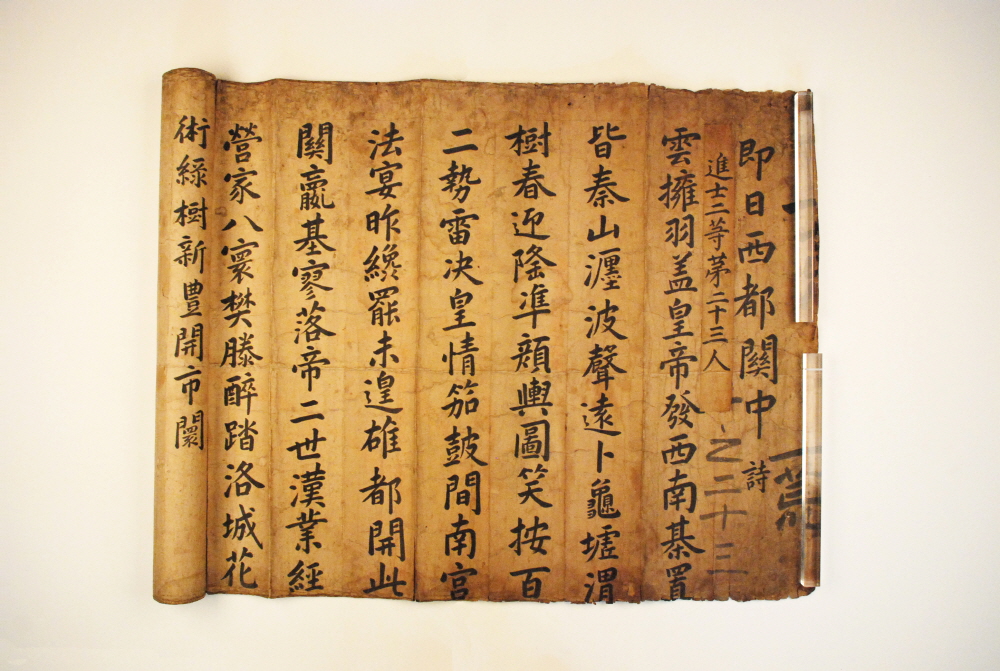 荒
即日西都關中 詩
進士二等苐二十三人
乙二十三
雲擁羽盖皇帝發西南棊置
皆秦山瀍波聲遠卜龜墟渭
樹春迎隆準頬輿圖笑按百
二勢雷决皇情笳鼓間南宮
法宴昨纔罷未遑雄都開此
關嬴基寥落帝二世漢業經
營家八寰樊滕醉踏洛城花
術綠樹新豊開市闤